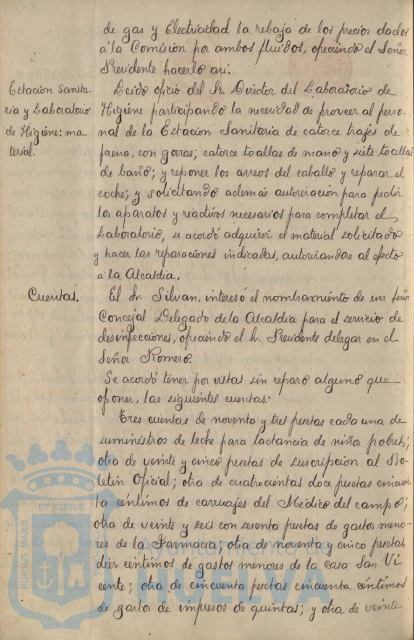 de gas y Electricidad la rebaja de los precios dados
á la Comisión por ambos fluidos, ofreciendo el Señor
Presidente hacerlo así.
Estación Sanita-
ria y Laboratorio
de Higiene: ma-
terial.
Leido oficio del Sr. Director del Laboratorio de
Higiene participando la necesidad de proveer al perso-
nal de la Estacion Sanitaria de catorce trajes de
faena, con gorras; catorce toallas de mano y siete toallas
de baño; y reponer los arreos del caballo y reparar el
coche; y solicitando además autorización para pedir
los aparatos y reactivos necesarios para completar el
Laboratorio, se acordó adquirir el material solicitado
y hacer las reparaciones indicadas, autorizandose al efecto
a la Alcaldia.
Cuentas.
El Sr. Silvan, interesó el nombramiento de un Señor
Concejal Delegado de la Alcaldia para el servicio de
desinfecciones, ofreciendo el Sr. Presidente delegar en el
Señor Romero.
Se acordó tener por vistas sin reparo alguno que
oponer, las siguientes cuentas:
Tres cuentas de noventa y tres pesetas cada una de
suministros de leche para lactancia de niños pobres;
otra de veinte y cinco pesetas de suscripcion al Bo-
letin Oficial; otra de cuatrocientas doce pesetas cincuen-
ta centimos de carruajes del Médico del campo;
otra de veinte y seis con sesenta pesetas de gastos meno-
res de la Farmacia; otra de noventa y cinco pesetas
diez centimos de gastos menores de la casa San Vi-
cente; otra de cincuenta pesetas cincuenta centimos
de gasto de impresos de quintas; y otra de veinte
PORTUS MARIS ET TERRÆ